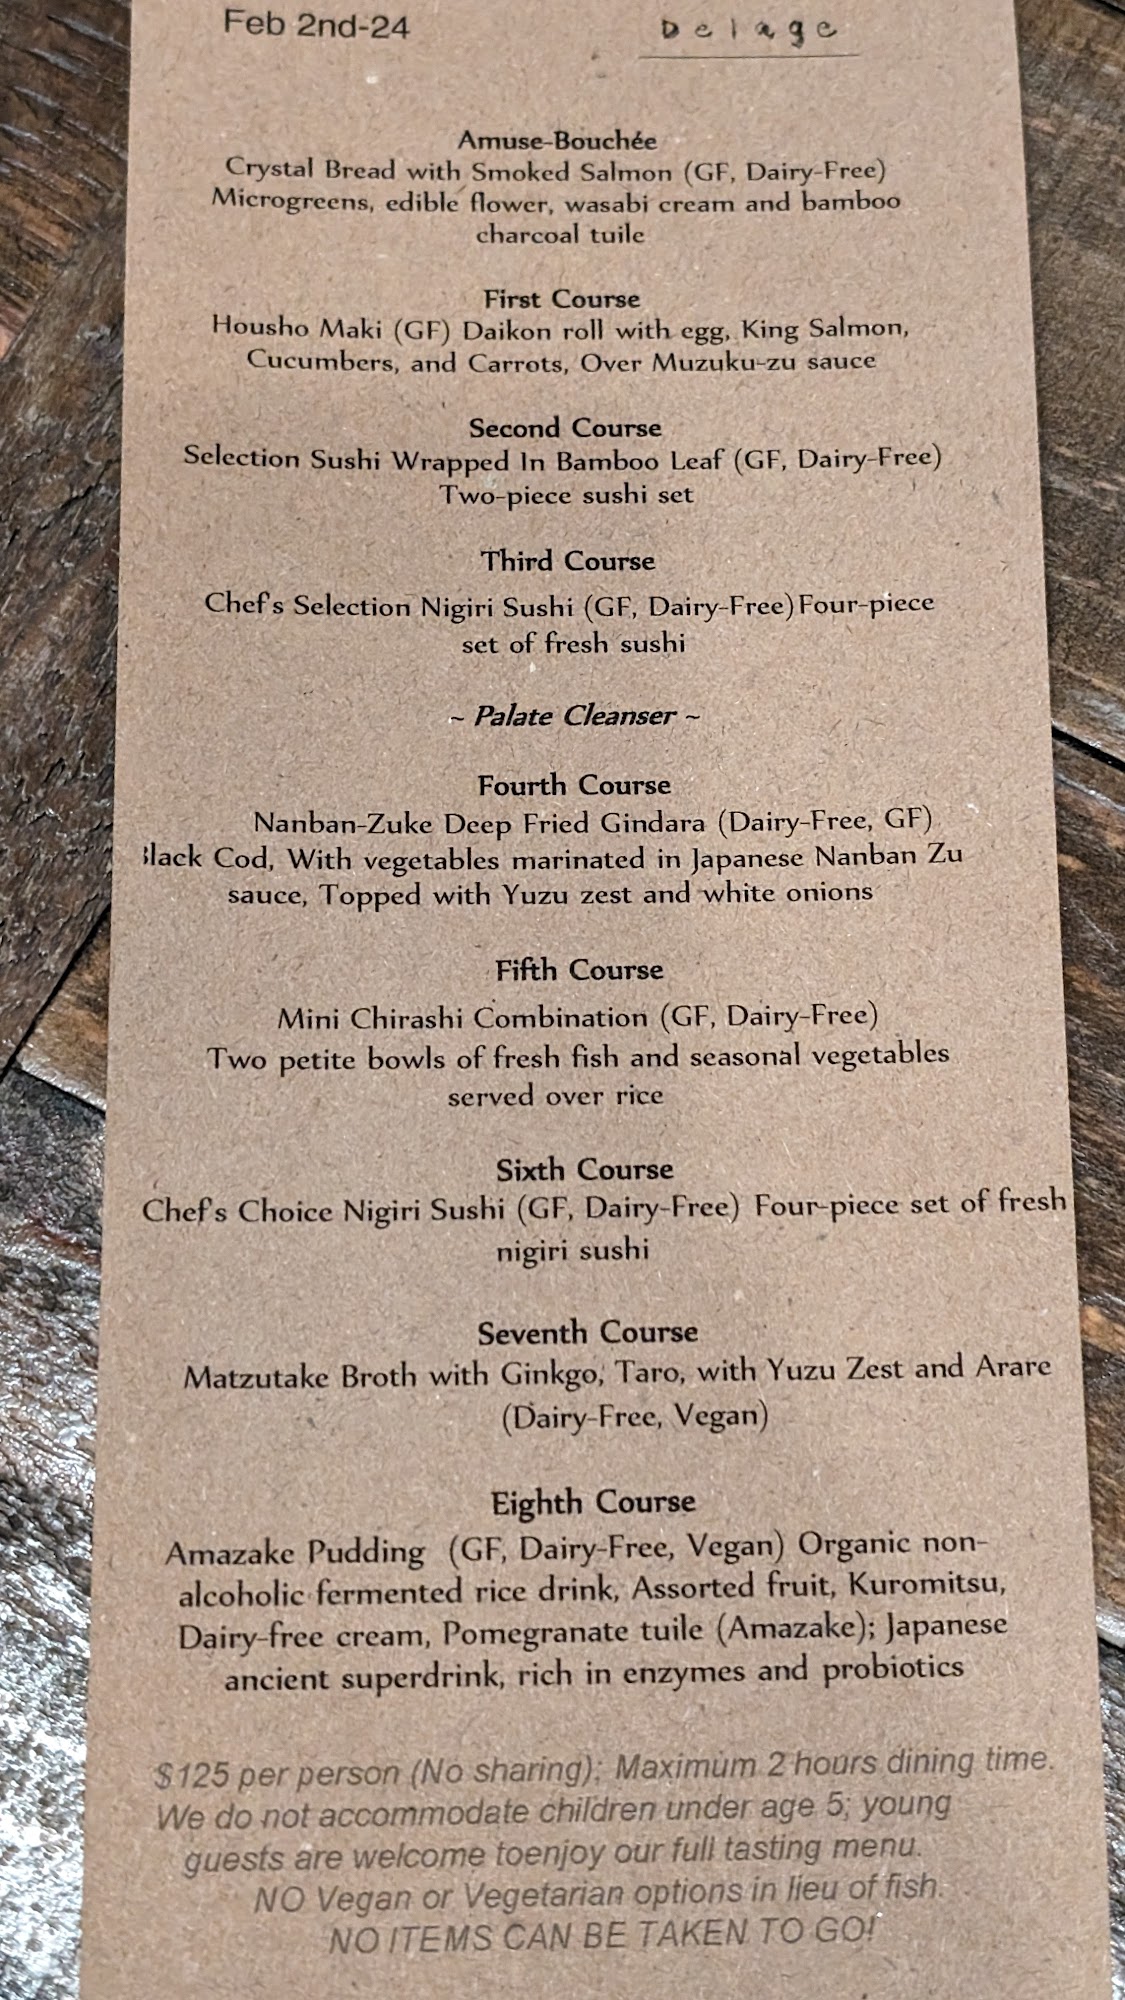 Feb 2nd-24
Delage
Amuse-Bouchée
Crystal Bread with Smoked Salmon (GF, Dairy-Free)
Microgreens, edible flower, wasabi cream and bamboo
charcoal tuile
First Course
Housho Maki (GF) Daikon roll with egg, King Salmon,
Cucumbers, and Carrots, Over Muzuku-zu sauce
Second Course
Selection Sushi Wrapped In Bamboo Leaf (GF, Dairy-Free)
Two-piece sushi set
Third Course
Chef's Selection Nigiri Sushi (GF, Dairy-Free) Four-piece
set of fresh sushi
~ Palate Cleanser ~
Fourth Course
Nanban-Zuke Deep Fried Gindara (Dairy-Free, GF)
lack Cod, With vegetables marinated in Japanese Nanban Zu
sauce, Topped with Yuzu zest and white onions
Fifth Course
Mini Chirashi Combination (GF, Dairy-Free)
Two petite bowls of fresh fish and seasonal vegetables
served over rice
Sixth Course
Chef's Choice Nigiri Sushi (GF, Dairy-Free) Four-piece set of fresh
nigiri sushi
Seventh Course
Matzutake Broth with Ginkgo, Taro, with Yuzu Zest and Arare
(Dairy-Free, Vegan)
Eighth Course
Amazake Pudding (GF, Dairy-Free, Vegan) Organic non-
alcoholic fermented rice drink, Assorted fruit, Kuromitsu,
Dairy-free cream, Pomegranate tuile (Amazake); Japanese
ancient superdrink, rich in enzymes and probiotics
$125 per person (No sharing); Maximum 2 hours dining time.
We do not accommodate children under age 5; young
guests are welcome toenjoy our full tasting menu.
NO Vegan or Vegetarian options in lieu of fish.
NO ITEMS CAN BE TAKEN TO GO!